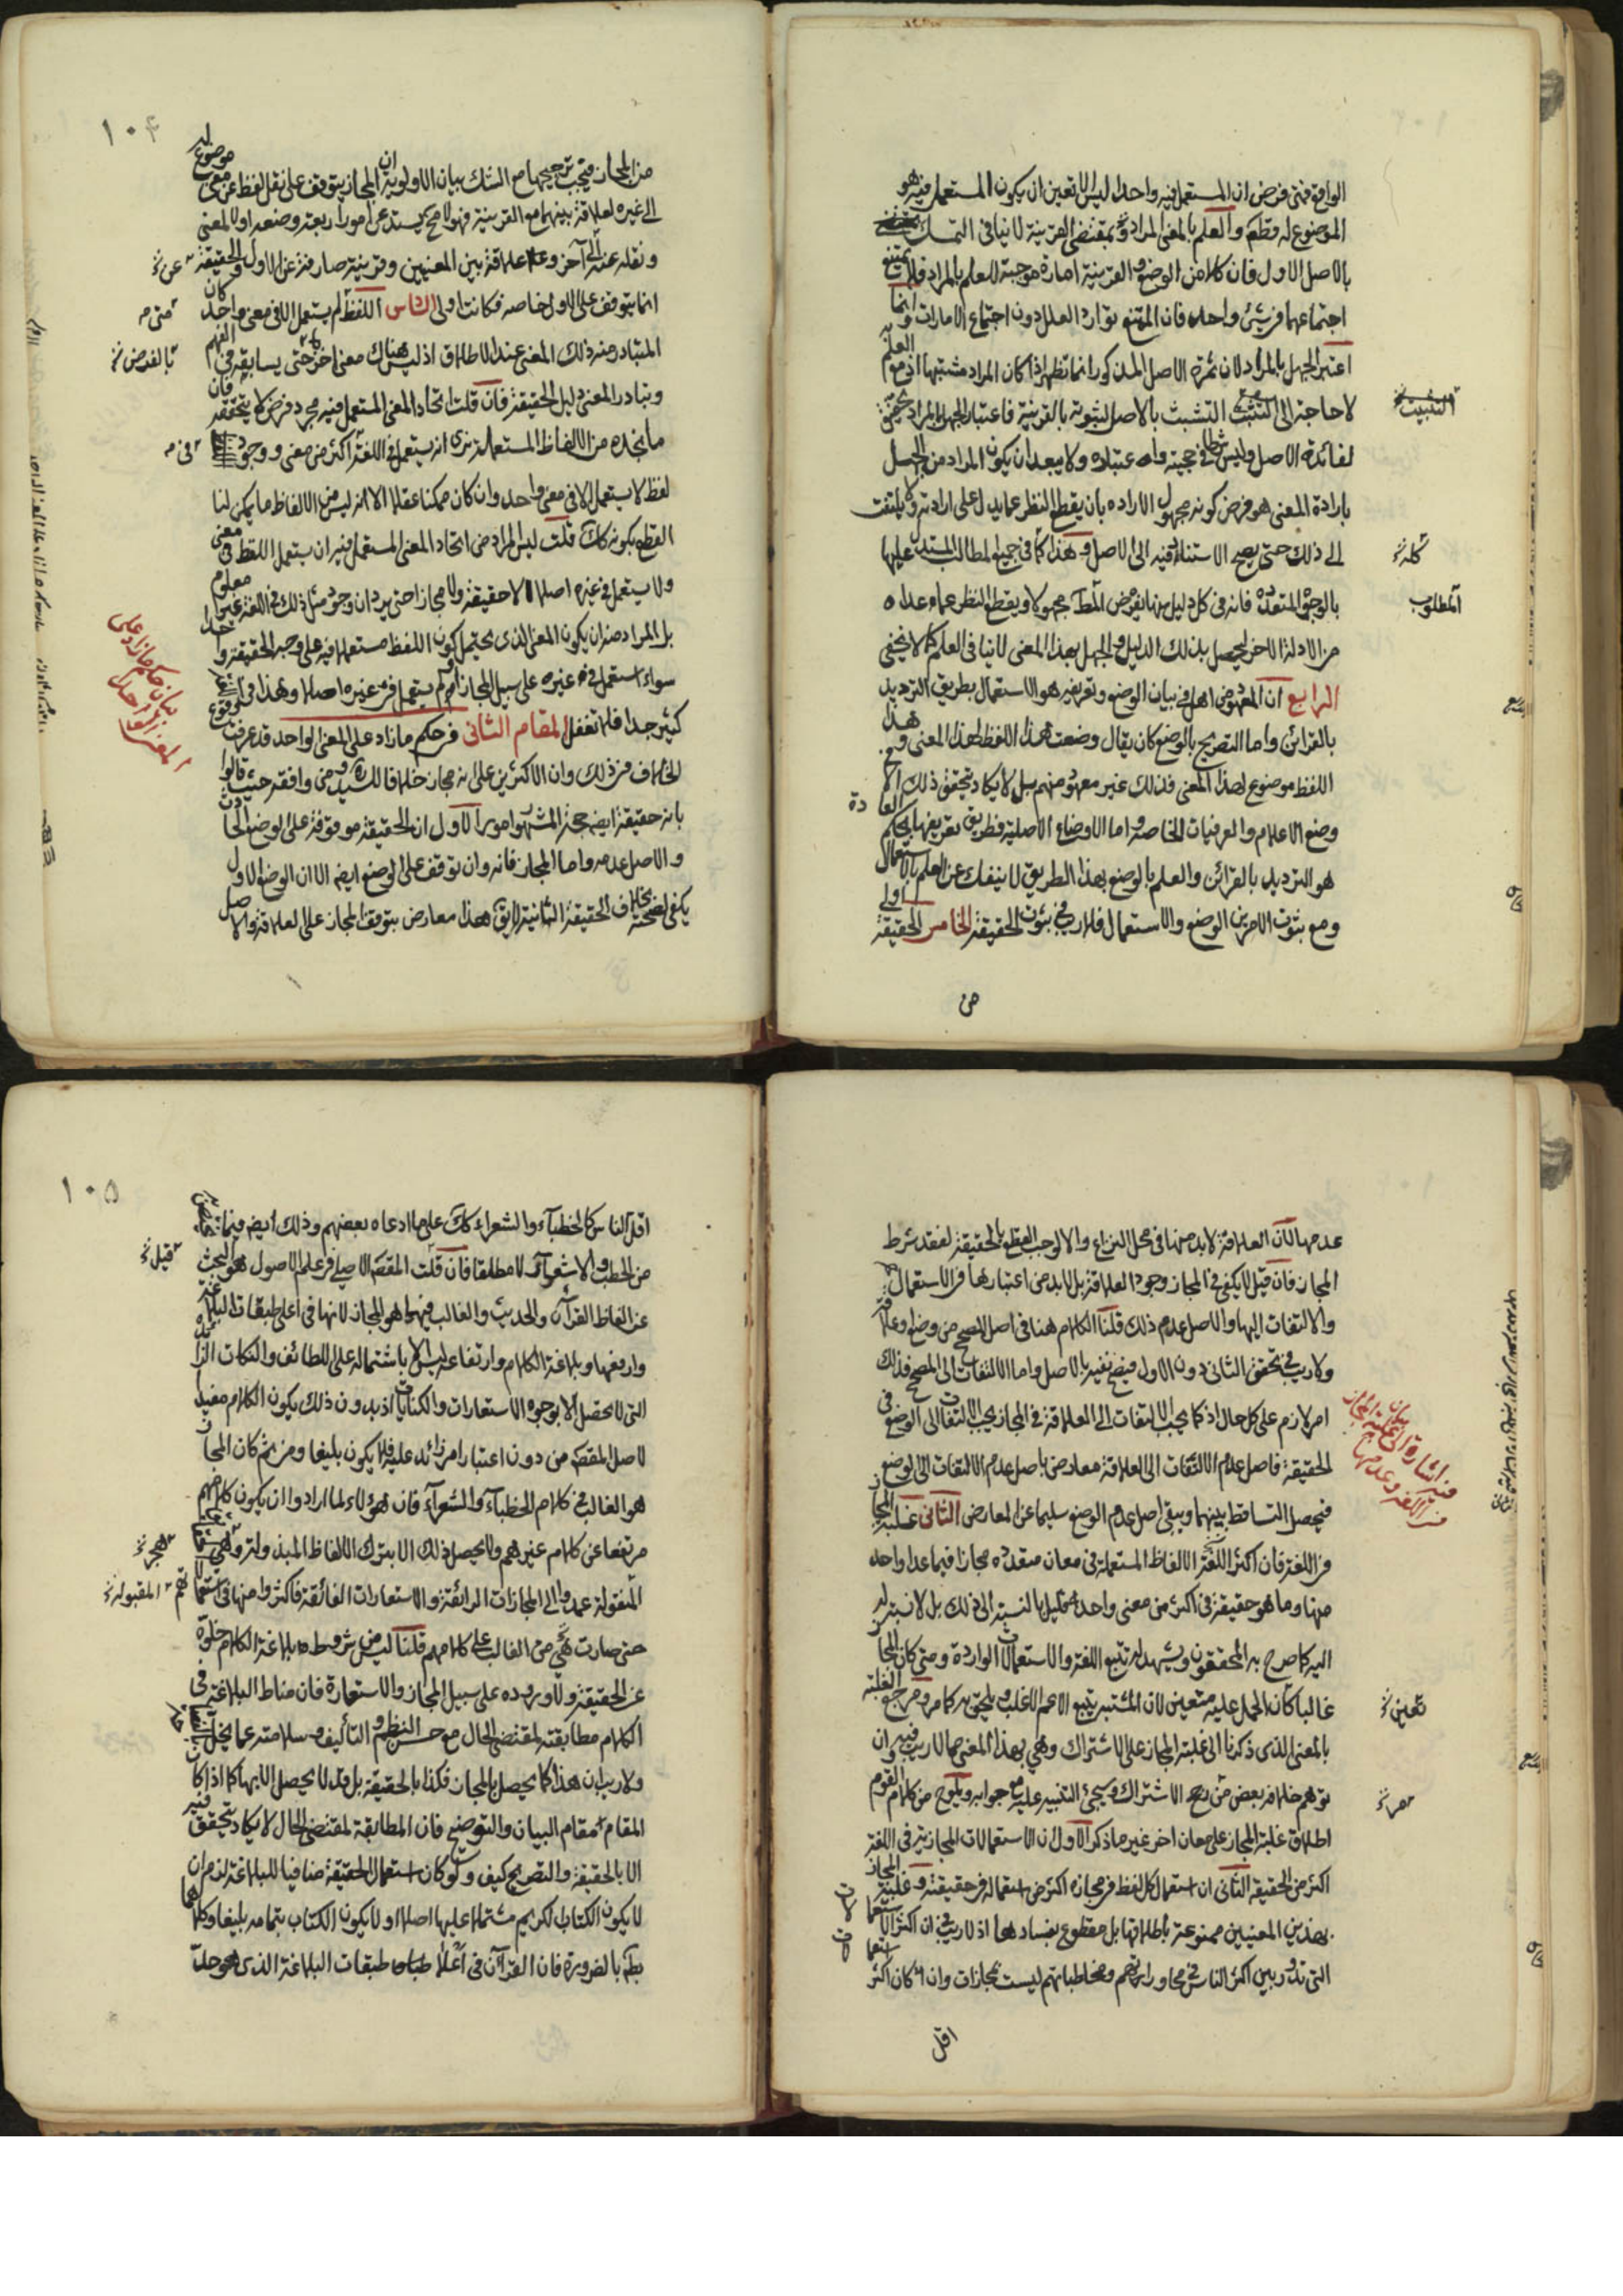 الواقع فمتى فرض ان المستعمل فيه واحدا ليس الا تعين ان يكون المستعمل فيه هو
الموضوع له قطعا والعلم بالمعنى المراد بمقتضى القرينة لا ينافى التمسك
بالاصل الاول فان كلا من الوضع والقرينة امارة موجبة للعلم بالمراد فلا يمتنع
اجتماعهما فى شىء واحد فان الممتنع توارد العلل دون اجتماع الامارات وانما
اعتبر الجهل بالمراد لان ثمرة الاصل المذكور انما تظهر اذا كان المراد مشتبها اذ مع العلم به
لا حاجة الى التشبث بالاصل لثبوته بالقرينة فاعتبار الجهل بالمراد
لفائدة الاصل وليس شرطا فى حجيته واعتباره ولا يبعد ان يكون المراد من الجهل
بارادة المعنى هو فرض كونه مجهول الارادة بان يقطع النظر عما يدل على ارادته ولا يلتفت
الى ذلك حتى يصح الاستناد فيه الى الاصل وهذا كما فى جميع المطالب المستدل عليها
بالوجوه المتعددة فانه فى كل دليل منها يفرض المط مجهولا ويقطع النظر عما عداه
من الادلة الاخر ليحصل بذلك الدليل والجهل بهذا المعنى لا ينافى العلم كما لا يخفى
الرابع ان المعهود من اهل فى بيان الوضع وتعريفه هو الاستعمال بطريق الترديد
بالقرائن واما التصريح بالوضع كان يقال وضعت هذا اللفظ لهذا المعنى وهذا
اللفظ موضوع لهذا المعنى فذلك غير معهود منهم بل لا يكاد يتحقق ذلك الا فى
وضع الاعلام والعرفيات الخاصة واما الاوضاع الاصلية فطريق تعريفها بحكم العادة
هو الترديد بالقرائن والعلم بالوضع بهذا الطريق لا ينفك عن العلم بالاستعمال
ومع ثبوت الامرين الوضع والاستعمال فلا ريب فى ثبوت الحقيقة الخامس الحقيقة اولى
المطلوب
من
١٠٤
من المجاز فيجب ترجيحها مع الشك بيان الاولوية ان المجاز يتوقف على نقل لفظ عن معنى موضوع له
الى غيره لعلاقة بينهما مع القرينة فهو لا مح يستدعى امورا اربعة وضعه اولا لمعنى
ونقله عنه الى آخر وعلاقة بين المعنيين وقرينة صارفة عن الاول والحقيقة
انما يتوقف على الاول خاصة فكانت اولى السادس اللفظ لم يستعمل الا فى معنى واحد كان
المتبادر منه ذلك المعنى عند الاطلاق اذ ليس هناك معنى اخر حتى يسابقه فى الفهم
وتبادر المعنى دليل الحقيقة فان قلت اتحاد المعنى المستعمل فيه مجرد فرض لا يتحقق فان
ما نجده من الالفاظ المستعملة نرى انه يستعمل فى اللغة اكثر من معنى ووجود
لفظ لا يستعمل الا فى معنى واحد وان كان ممكنا عقلا الا انه ليس من الالفاظ ما يمكن لنا
القطع بكونه كك قلت ليس المراد من اتحاد المعنى المستعمل فيه ان يستعمل اللفظ فى معنى
ولا يستعمل فى غيره اصلا لا حقيقة ولا مجازا حتى يرد ان وجود مثل ذلك فى اللغة غير معلوم
بل المراد منه ان يكون المعنى الذى يحتمل كون اللفظ مستعملا فيه على وجه الحقيقة واحدا
سواء استعمل فى غيره على سبيل المجاز ام لم يستعمل فى غيره اصلا وهذا فى اللغة
كثير جدا فلا تغفل المقام الثانى فى حكم ما زاد على المعنى الواحد قد عرفت وقوع
الخلاف فى ذلك وان الاكثرين على انه مجاز خلافا للسيد ره ومن وافقه حيث قالوا
بانه حقيقة ايضا حجة المشهور امور الاول ان الحقيقة موقوفة على الوضع الحادث
والاصل عدمه واما المجاز فانه وان توقف على الوضع ايضا الا ان الوضع الاول
يكفى لصحته بخلاف الحقيقة الثانية لا يق هذا معارض بتوقف المجاز على العلاقة والاصل
بالفرض خ
بيان حكم ما زاد على
المعنى الواحد
عدمها لان العلاقة لا بد منها فى محل النزاع والا لوجب القطع بالحقيقة لفقد شرط
المجاز فان قيل لا يكفى فى المجاز وجود العلاقة بل لا بد من اعتبارها فى الاستعمال
والالتفات اليها والاصل عدم ذلك قلنا الكلام هنا فى اصل المصحح من وضع وعلاقة
ولا ريب فى تحقق الثانى دون الاول فيصح نفيه بالاصل واما الالتفات الى المصحح فذلك
امر لازم على كل حال اذ كما يجب الالتفات الى العلاقة فى المجاز يجب الالتفات الى الوضع فى
الحقيقة فاصل عدم الالتفات الى العلاقة معارض باصل عدم الالتفات الى الوضع
فيحصل التساقط بينهما ويبقى اصل عدم الوضع سليما عن المعارض الثانى غلبة المجاز
فى اللغة فان اكثر اللغة الالفاظ المستعملة فى معان متعددة مجاز فيما عدا واحد
منها وما هو حقيقة فى اكثر من معنى واحد قليل بالنسبة الى ذلك بل لا نسبة له
اليه كما صرح به المحققون ويشهد له تتبع اللغة والاستعمالات الواردة ومتى كان المجاز
غالبا كان الحمل عليه متعين لان المشتبه يتبع الاعم الاغلب ويلحق به كما مر ومرجع الغلبة
بالمعنى الذى ذكرنا الى غلبة المجاز على الاشتراك وهى بهذا المعنى مما لا ريب فيه وان
توهم خلافه بعض من رجح الاشتراك وسيجىء التنبيه عليه مع جوابه ويلوح من كلام القوم
اطلاق غلبة المجاز على معان اخر غير ما ذكر الاول ان الاستعمالات المجازية فى اللغة
اكثر من الحقيقة الثانى ان استعمال كل لفظ فى مجازه اكثر من استعماله فى حقيقته وغلبة المجاز
بهذين المعنيين ممنوعة باطلاقها بل مقطوع بفسادهما اذ لا ريب فى ان اكثر الاستعمالات
التى تدور بين اكثر الناس فى محاوراتهم ومخاطباتهم ليست مجازات وان كان اكثر استعمالات
فيه اشارة الى غلبة المجاز
فى اللغة وعدمها
اقل
١٠٥
اقل الناس كالخطباء والشعراء كك على ما ادعاه بعضهم وذلك ايضا فيما
من الخطب والاشعار لا مطلقا فان قلت المقصد الاصلى فى علم الاصول هو البحث
عن الفاظ القرآن والحديث والغالب فيهما هو المجاز لانها فى اعلى طبقات البلاغة
وارفعها وبلاغة الكلام وارتفاعه ليس الا باشتماله على اللطائف والنكات الزائدة
التى لا تحصل الا بوجوه الاستعارات والكنايات اذ بدون ذلك يكون الكلام مفيدا
لاصل المقصد من دون اعتبار امر زائد عليه فلا يكون بليغا ومن ثم كان المجاز
هو الغالب فى كلام الخطباء والشعراء فان هؤلاء لما ارادوا ان يكون كلامهم
مرتفعا عن كلام غيرهم ولا يحصل ذلك الا بترك الالفاظ المبذولة
المنقولة عمدوا الى المجازات الرائقة والاستعارات الفائقة فاكثروا منها فى استعمالاتهم
حتى صارت هى من الغالب على كلامهم قلنا ليس من شروط بلاغة الكلام خلوه
عن الحقيقة ولا وروده على سبيل المجاز والاستعارة فان مناط البلاغة فى
الكلام مطابقته لمقتضى الحال مع حسن النظم والتأليف وسلامته عما يخل
ولا ريب ان هذا كما يحصل بالمجاز فكذا بالحقيقة بل قد لا يحصل الا بها كما اذا كان
المقام مقام البيان والتوضيح فان المطابقة لمقتضى الحال لا يكاد يتحقق فيه
الا بالحقيقة والتصريح كيف ولو كان استعمال الحقيقة منافيا للبلاغة لزم ان
لا يكون الكتاب الكريم مشتملا عليها اصلا او لا يكون الكتاب بتمامه بليغا وكلاهما
بط بالضرورة فان القرآن فى اعلا طبقات البلاغة الذى هو حد
قيل خ
المقبولة خ